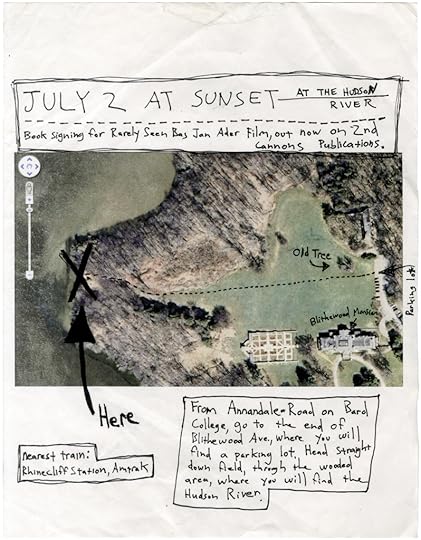 JULY 2 AT SUNSET AT THE HUDSON
RIVER
Book signing for Rarely Seen Bas Jan Ader Film, out now on 2nd
Cannons Publications.
Old Tree
Parking lot
Blithewood Mansion
Here
From Annandale Road on Bard
College, go to the end of
Blithewood Ave, where you will
find a parking lot. Head straight
down field, throgh the wooded
area, where you will find the
Hudson River.
nearest train:
Rhinecliff Station, Amtrak